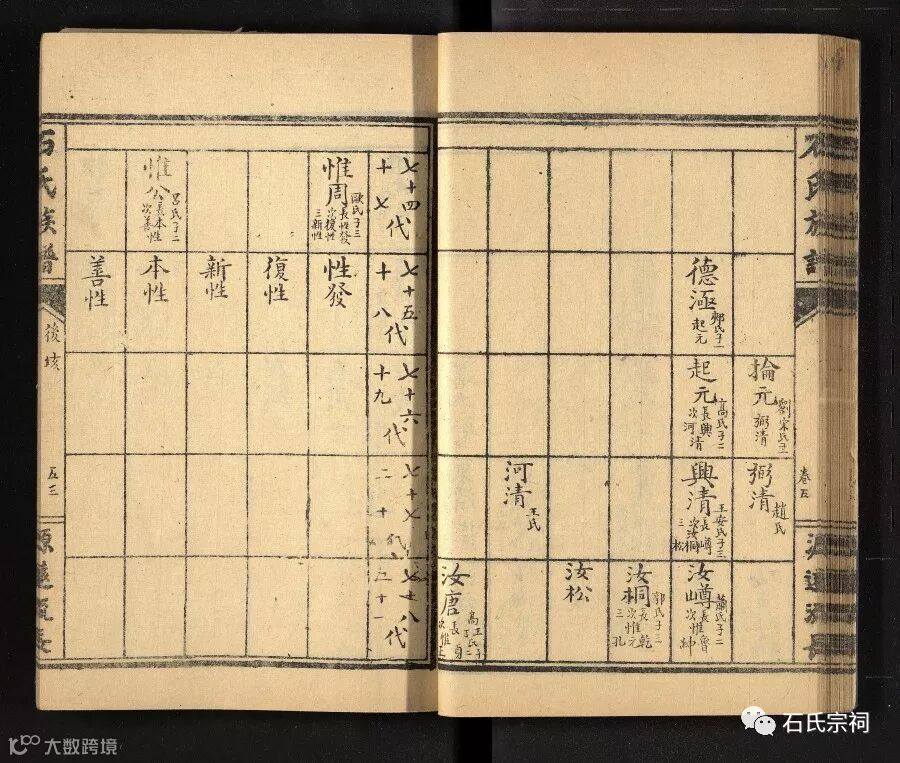 石氏族譜
卷五
源遠流長
掄元
劉宋氏子
弼清
弼清
趙氏
德溼
鄭氏子一
起元
起元
高氏子二
長興清
次河清
興清
王安氏子三
長汝嶟
次汝桐
三松
汝嶟
蕭氏子二
長惟魯
次惟紳
汝桐
郭氏子三
長惟乾
次惟元
三孔
汝松
河清
王氏
汝唐
高王氏子二
七十四代
十七
七十五代
十八
七十六代
十九
七十七代
二十
七十八代
二十一
惟周
歐氏子三
長性發
次復性
三新性
性發
復性
新性
惟公
呂氏子二
長本性
次善性
本性
善性
石氏族譜
後垓
五三
源遠流長
石氏宗祠
大数跨境